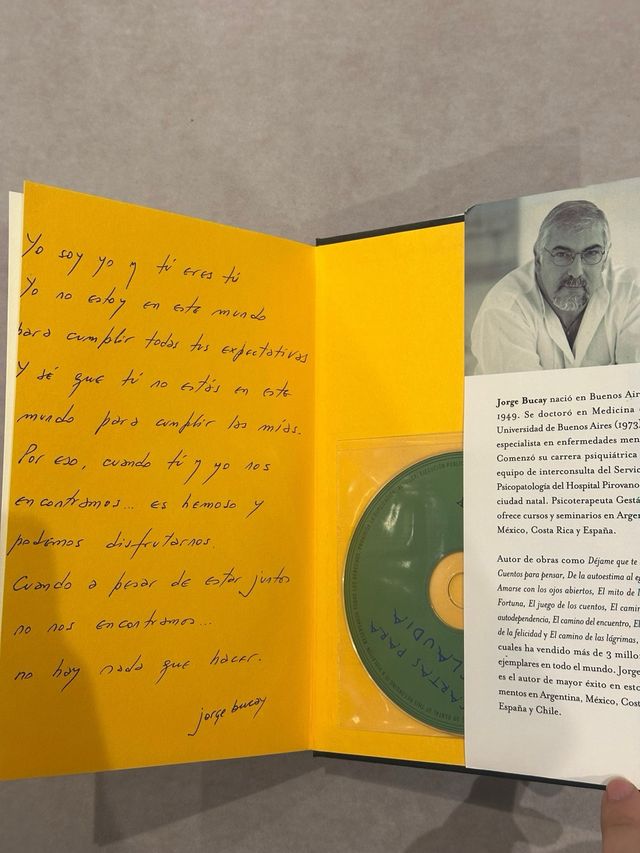 Yo soy yo y tú eres tú
Yo no estoy en este mundo
para cumplir todas tus expectativas
Y sé que tú no estás en este
mundo para cumplir las mías.
Por eso, cuando tú y yo nos
encontramos... es hemoso y
podemos disfrutarnos.
Cuando a pesar de estar juntos
no nos encontramos...
no hay nada que hacer.
jorge bucay
CARTAS PARA
CLAUDIA
Jorge Bucay nació en Buenos Air
1949. Se doctoró en Medicina
Universidad de Buenos Aires (1973)
especialista en enfermedades men
Comenzó su carrera psiquiátrica
equipo de interconsulta del Servic
Psicopatología del Hospital Pirovano
ciudad natal. Psicoterapeuta Gestá
ofrece cursos y seminarios en Argen
México, Costa Rica y España.
Autor de obras como Déjame que te
Cuentos para pensar, De la autoestima al eg
Amarse con los ojos abiertos, El mito de
Fortuna, El juego de los cuentos, El camin
autodependencia, El camino del encuentro, El
de la felicidad y El camino de las lágrimas,
cuales ha vendido más de 3 millo
ejemplares en todo el mundo. Jorge
es el autor de mayor éxito en esto
mentos en Argentina, México, Cost
España y Chile.